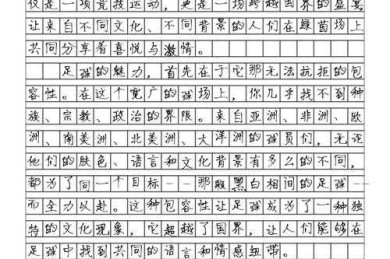 仅是一项竞技运动，更是一场跨越国界的盛宴
让来自不同文化、不同背景的人们在绿茵场上
共同分享着喜悦与激情。
足球的魅力，首先在于它那无法抗拒的包
容性。在这个宽广的球场上，你几乎找不到种
族、宗教、政治的界限。来自亚洲、非洲、欧
洲、南美洲、北美洲、大洋洲的球员们，无论
他们的肤色、语言和文化背景有多么的不同，
都为了同一个目标——那颗黑白相间的足球——
而全力以赴。这种包容性让足球成为了一种独
特的文化现象，它超越了国界，让人们能够在
足球中找到共同的语言和情感纽带。